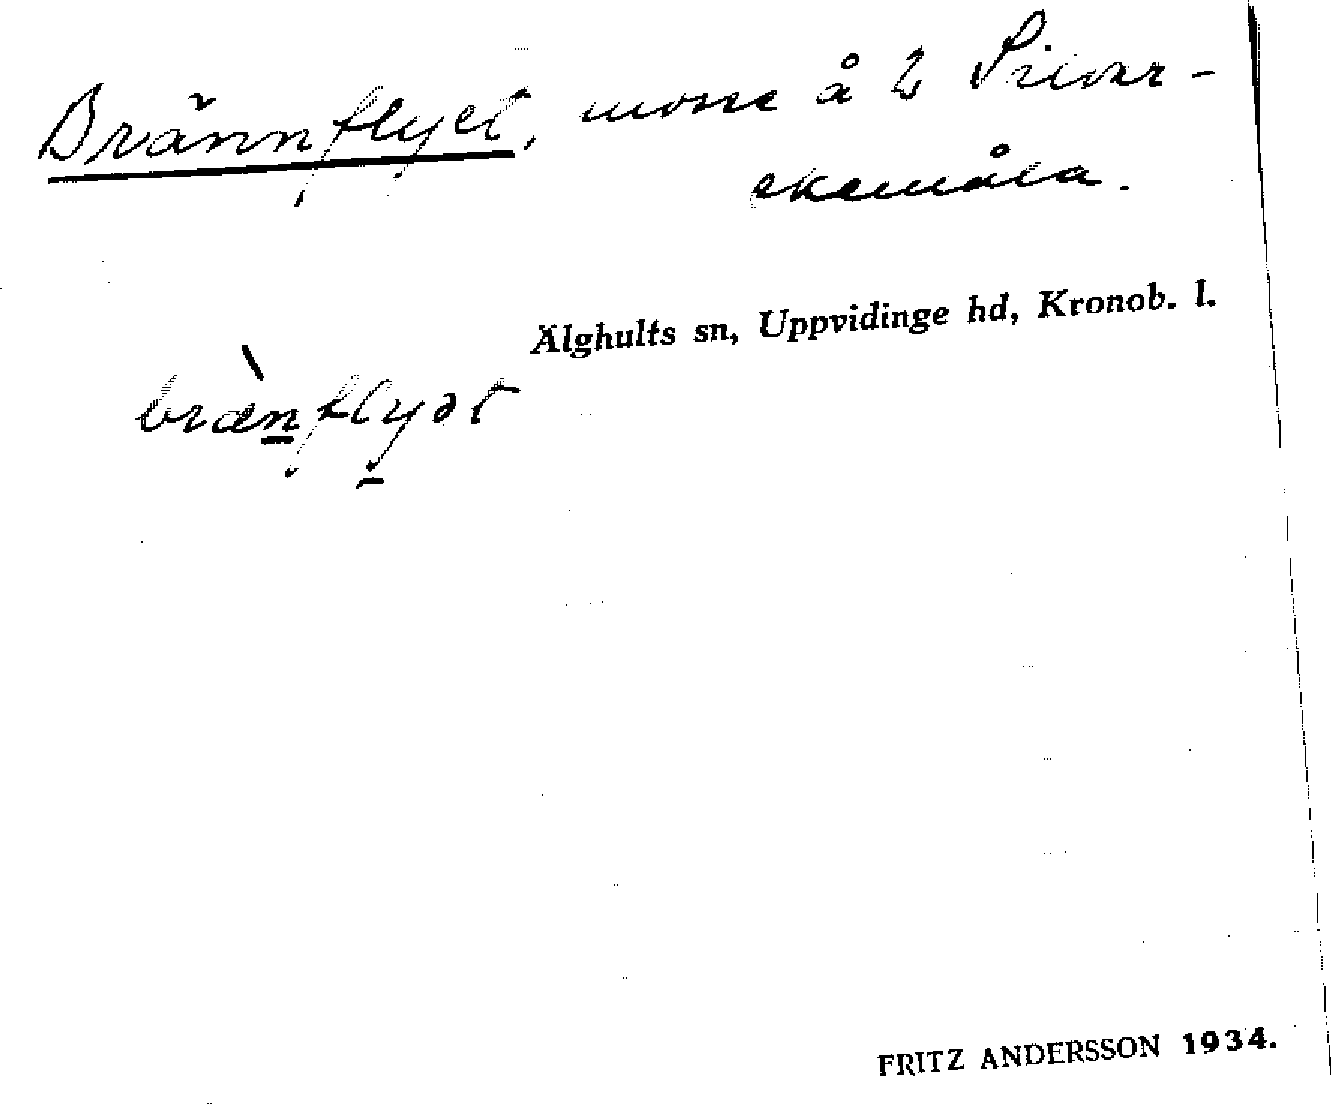 Brännflyet, mosse å 2
ekemåla.
Älghults sn, Uppvidinge hd, Kronob. l.
brænflyət
FRITZ ANDERSSON 1934.